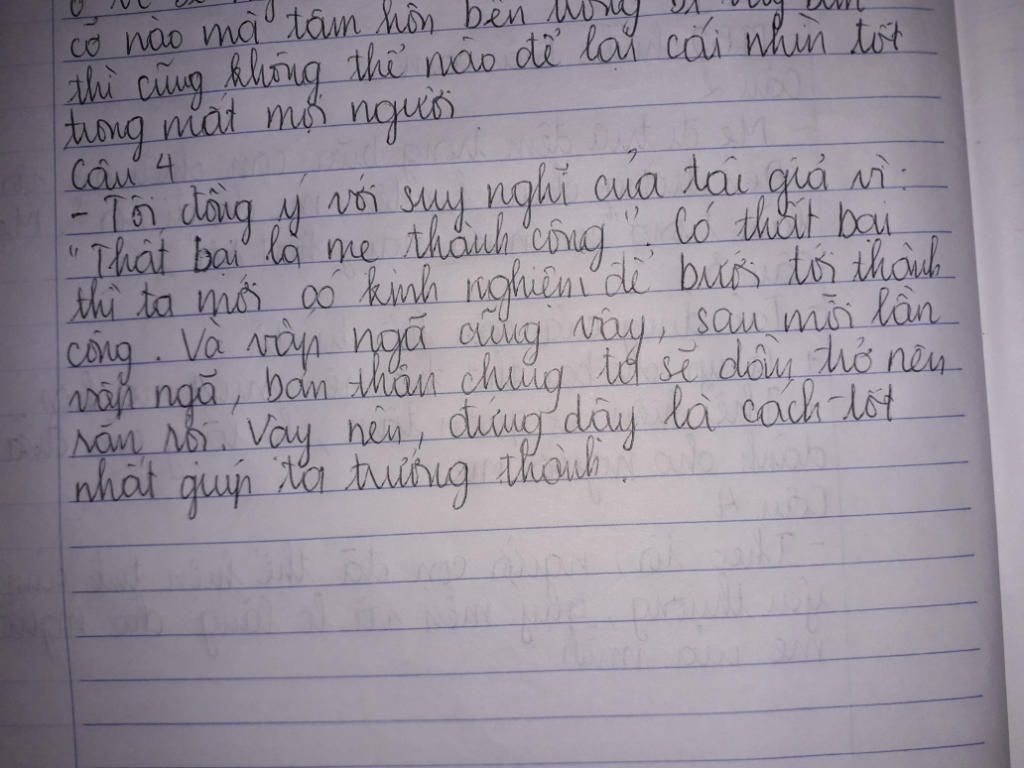 cỡ nào mà tâm hồn bên trong
thì cũng không thể nào để lại cái nhìn tốt
trong mắt mọi người
Câu 4
- Tôi đồng ý với suy nghĩ của tác giả vì:
"Thất bại là mẹ thành công". Có thất bại
thì ta mới có kinh nghiệm để bước tới thành
công. Và vấp ngã cũng vậy, sau mỗi lần
vấp ngã, bản thân chúng ta sẽ dần trở nên
rắn rỏi. Vậy nên, đứng dậy là cách tốt
nhất giúp ta trưởng thành.